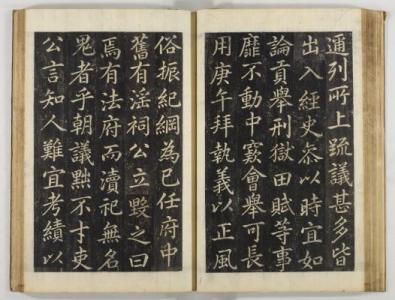 邇列所上䟽議甚多皆
出入經史叅以時宜如
論貢舉刑獄田賦等事
靡不動中窾會舉可長
用庚午拜執義以正風
俗振紀綱為己任府中
舊有淫祠公立毁之曰
焉有法府而瀆祀無名
鬼者乎朝議黜不才吏
公言知人難宜考績以